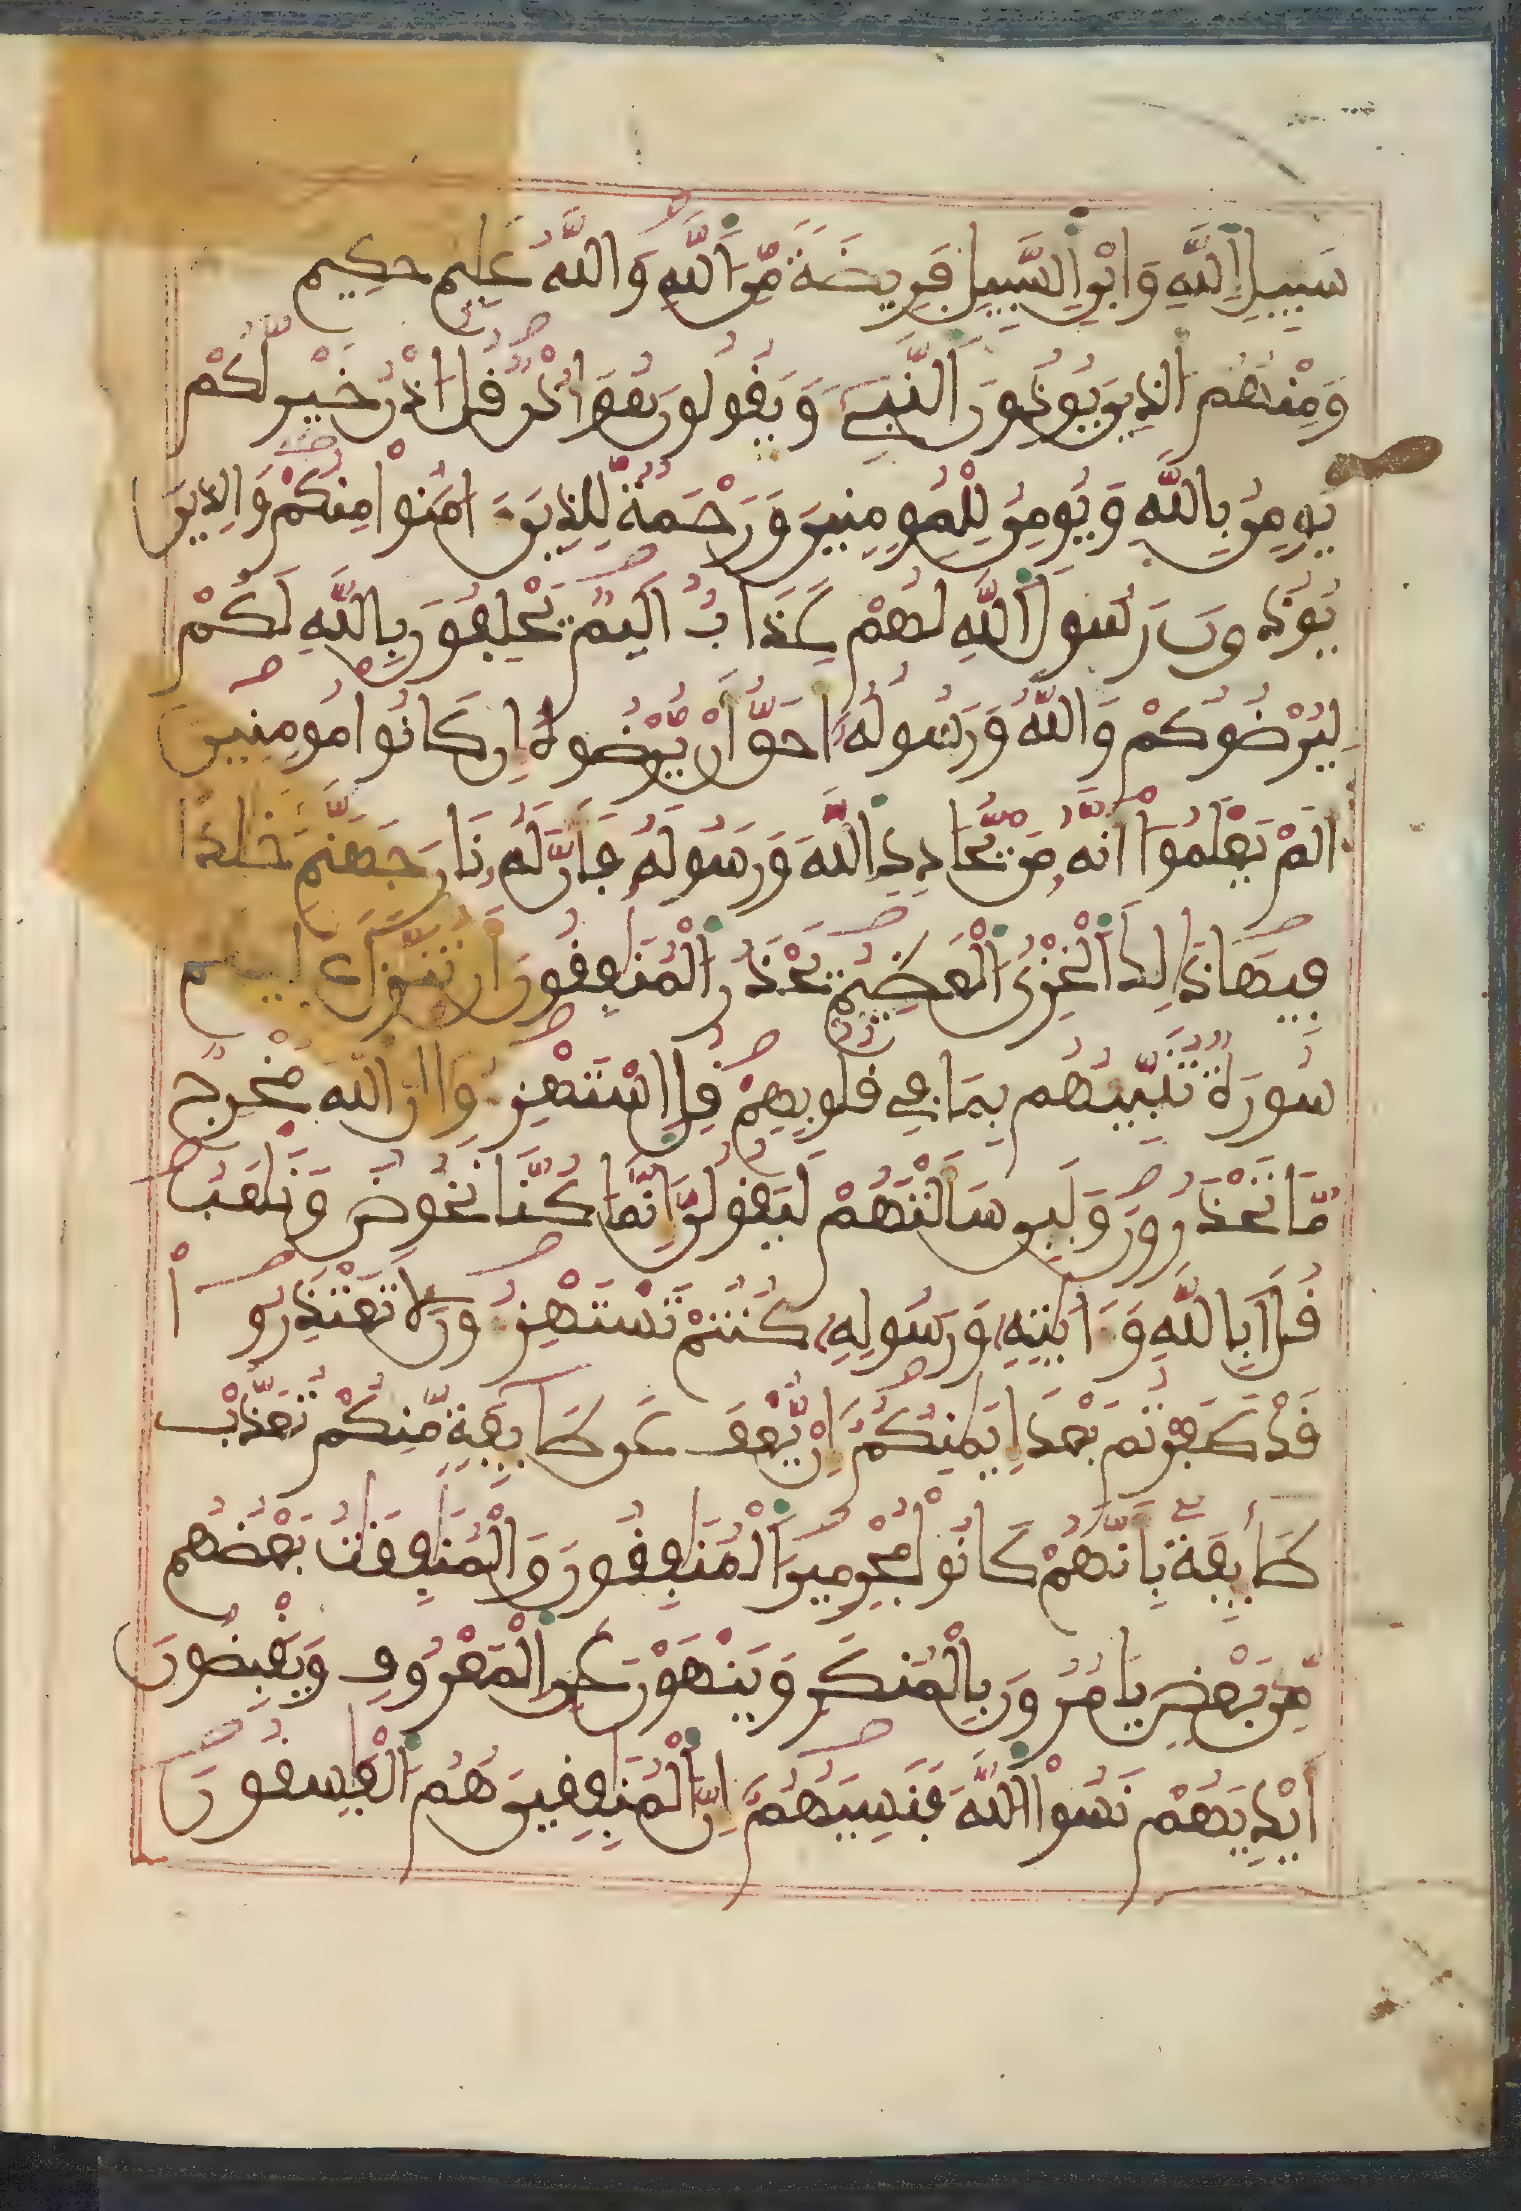 سَبِيلِ اِ۬للَّهِ وَابْنِ اِ۬لسَّبِيلِ فَرِيضَةٗ مِّنَ اَ۬للَّهِ وَاللَّهُ عَلِيمٌ حَكِيم
وَمِنْهُمُ الذِينَ يُوذُونَ اَ۬لنَّبِےٓءَ وَيَقُولُونَ هُوَ أُذْنٞ قُلُ اذْنُ خَيْرٖ لَّكُمْ
يُومِنُ بِاللَّهِ وَيُومِنُ لِلْمُومِنِينَ وَرَحْمَةٞ لِّلذِينَ ءَامَنُواْ مِنكُمْ وَالذِينَ
يُوذُونَ رَسُولَ اَ۬للَّهِ لَهُمْ عَذَابٌ اَلِيمٞ يَحْلِفُونَ بِاللَّهِ لَكُمْ
لِيُرْضُوكُمْ وَاللَّهُ وَرَسُولُهُۥٓ أَحَقُّ أَنْ يُّرْضُوهُ إِن كَانُواْ مُومِنِينَ
أَلَمْ يَعْلَمُوٓاْ أَنَّهُۥ مَنْ يُّحَادِدِ اِ۬للَّهَ وَرَسُولَهُۥ فَأَنَّ لَهُۥ نَارَ جَهَنَّمَ خَٰلِداٗ
فِيهَا ذَٰلِكَ اَ۬لْخِزْيُ اُ۬لْعَظِيمُ يَحْذَرُ اُ۬لْمُنَٰفِقُونَ أَن تُنَزَّلَ عَلَيْهِمْ
سُورَةٞ تُنَبِّئُهُم بِمَا فِے قُلُوبِهِمْ قُلِ اِ۪سْتَهْزِءُوٓاْ إِنَّ اَ۬للَّهَ مُخْرِجٞ
مَّا تَحْذَرُونَ وَلَئِن سَأَلْتَهُمْ لَيَقُولُنَّ إِنَّمَا كُنَّا نَخُوضُ وَنَلْعَبُ
قُلَ اَبِاللَّهِ وَءَايَٰتِهِۦ وَرَسُولِهِۦ كُنتُمْ تَسْتَهْزِءُونَ لَا تَعْتَذِرُواْ
قَدْ كَفَرْتُم بَعْدَ إِيمَٰنِكُمُۥٓ إِنْ يُّعْفَ عَن طَآئِفَةٖ مِّنكُمْ تُعَذَّبْ
طَآئِفَةُۢ بِأَنَّهُمْ كَانُواْ مُجْرِمِينَ اَ۬لْمُنَٰفِقُونَ وَالْمُنَٰفِقَٰتُ بَعْضُهُم
مِّنۢ بَعْضٖ يَامُرُونَ بِالْمُنكَرِ وَيَنْهَوْنَ عَنِ اِ۬لْمَعْرُوفِ وَيَقْبِضُونَ
أَيْدِيَهُمْ نَسُواْ اُ۬للَّهَ فَنَسِيَهُمُۥٓ إِنَّ اَ۬لْمُنَٰفِقِينَ هُمُ اُ۬لْفَٰسِقُونَ